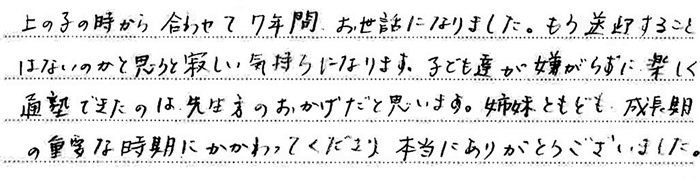 上の子の時から 合わせて 7年間、お世話になりました。もう送迎すること
はないのかと思うと寂しい気持ちになります。子ども達が嫌がらずに楽しく
通塾できたのは先生方のおかげだと思います。姉妹ともども、成長期
の重要な時期にかかわってくださり 本当にありがとうございました。